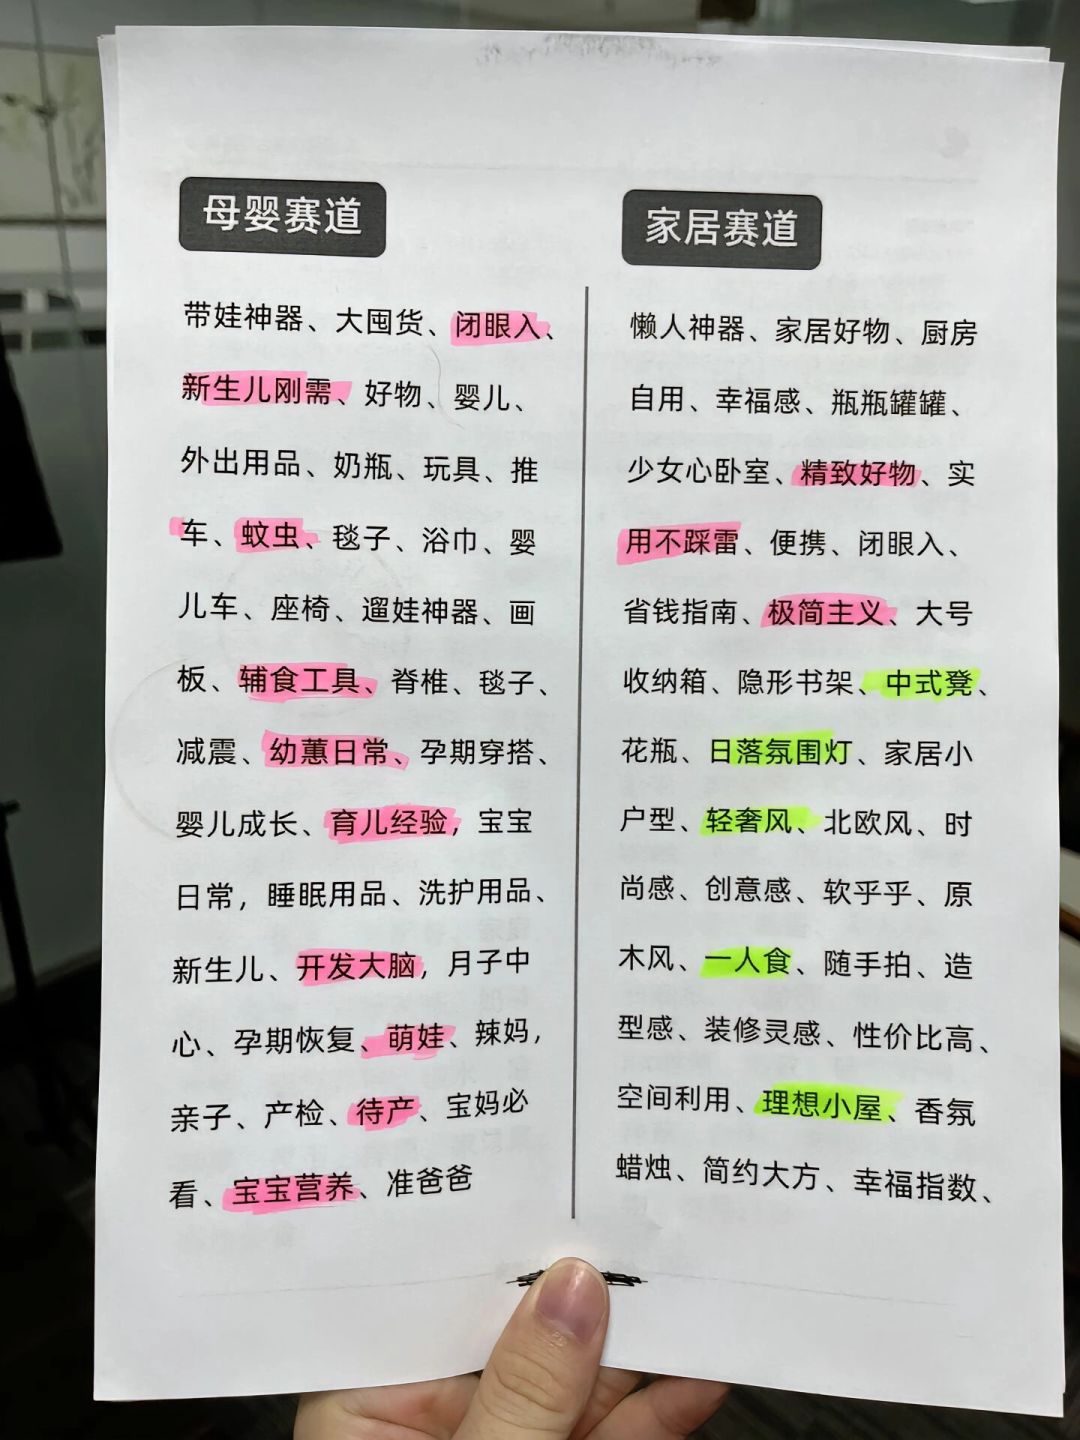 母婴赛道
带娃神器、大囤货、闭眼入、
新生儿刚需、好物、婴儿、
外出用品、奶瓶、玩具、推
车、蚊虫、毯子、浴巾、婴
儿车、座椅、遛娃神器、画
板、辅食工具、脊椎、毯子、
减震、幼蕙日常、孕期穿搭、
婴儿成长、育儿经验，宝宝
日常，睡眠用品、洗护用品、
新生儿、开发大脑，月子中
心、孕期恢复、萌娃、辣妈，
亲子、产检、待产、宝妈必
看、宝宝营养、准爸爸
家居赛道
懒人神器、家居好物、厨房
自用、幸福感、瓶瓶罐罐、
少女心卧室、精致好物、实
用不踩雷、便携、闭眼入、
省钱指南、极简主义、大号
收纳箱、隐形书架、中式凳、
花瓶、日落氛围灯、家居小
户型、轻奢风、北欧风、时
尚感、创意感、软乎乎、原
木风、一人食、随手拍、造
型感、装修灵感、性价比高、
空间利用、理想小屋、香氛
蜡烛、简约大方、幸福指数、